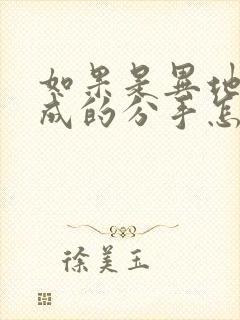 如果是异地
成的分手怎
徐美玉